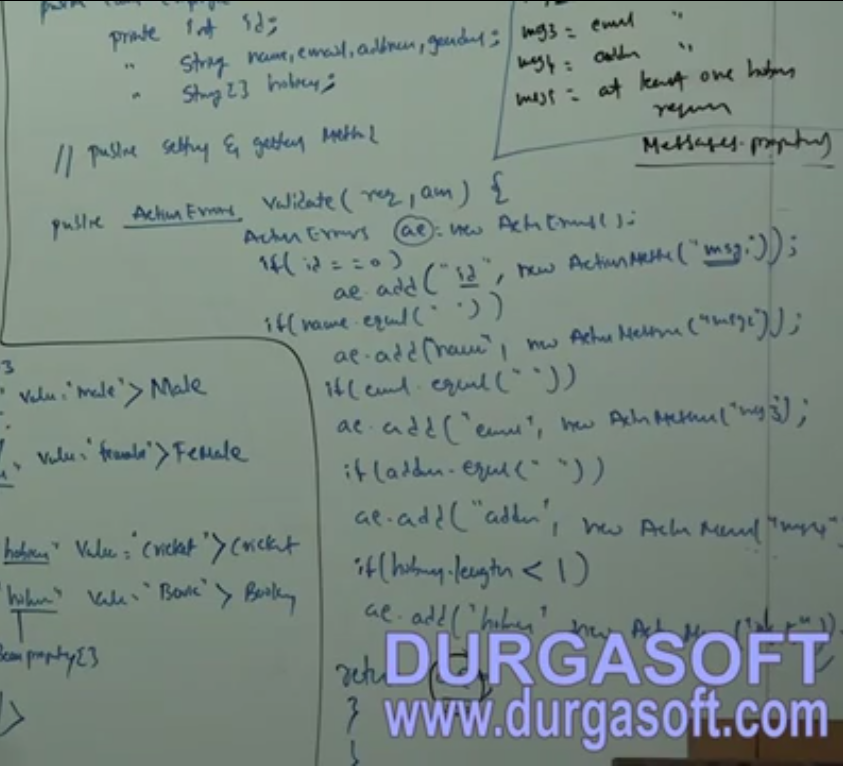 private int id;
" String name, email, address, gender;
" String[] hobbies;
// public setters & getters Method
public ActionErrors validate(req, am) {
ActionErrors ae = new ActionErrors();
if(id == 0)
ae.add("id", new ActionMessage("msg1"));
if(name.equal(" "))
ae.add(name", new ActionMessage("msg2"));
if(email.equal(" "))
ae.add("email", new ActionMessage("msg3);
if(address.equal(" "))
ae.add("address", new ActionMessage("msg4"
if(hobbies.length < 1)
ae.add("hobbies"
}
}
msg3 = email "
msg4 = address "
msg5 = at least one hobbies
Messages.properties
value="male">Male
value="female">Female
hobbies" value="cricket">Cricket
value="
Bean property[]
/>
DURGASOFT
www.durgasoft.com